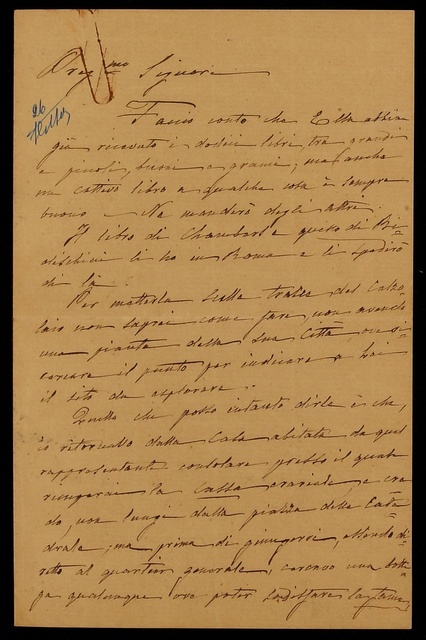 Preg.mo Signore
26
Faccio conto che Ella abbia
già ricevuto i dodici libri, tra grandi
e piccoli, buoni e grami, ma anche
un cattivo libro a qualche cosa è sempre
buono. Ne manderò degli altri.
Il libro di Chambers e questo di
li ho in Roma e li spedirò
di là.
Per metterla sulle tracce del Calzo
laio non saprei come fare, non avendo
una pianta della sua Città, ove si
cercare il punto per indicare a Lei
il sito da esplorare.
Quello che posso intanto dirle è che,
io ritornando dalla Casa abitata da quel
rappresentante consolare presso il quale
ricuperai la Cassa craniale, e cre
do, non lungi dalla piazza della Catte
drale; ma prima di giungervi, essendo di
retto al quartier generale, cercavo una botte
ga qualunque ove poter soddisfare la fame